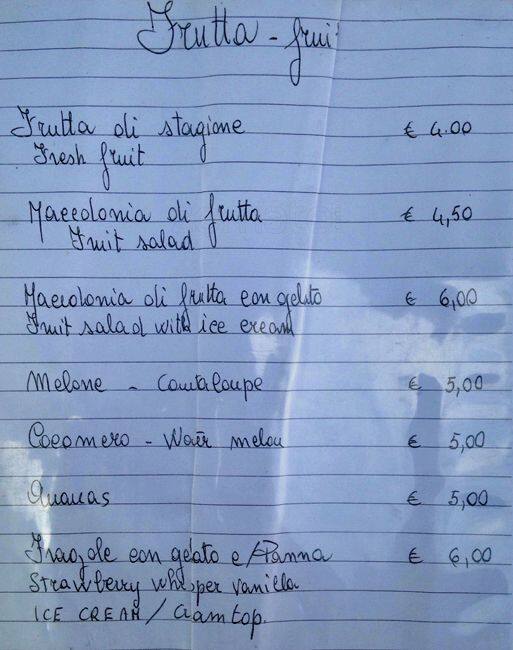 Frutta - frui
Frutta di stagione € 4.00
Fresh fruit
Macedonia di frutta € 4,50
Fruit salad
Macedonia di frutta con gelato € 6,00
Fruit salad with ice cream
Melone - Cantaloupe € 5,00
Cocomero - Water melon € 5,00
Ananas € 5,00
Fragole con gelato e/Panna € 6,00
Strawberry whisper vanilla
ICE CREAM / Cream top.